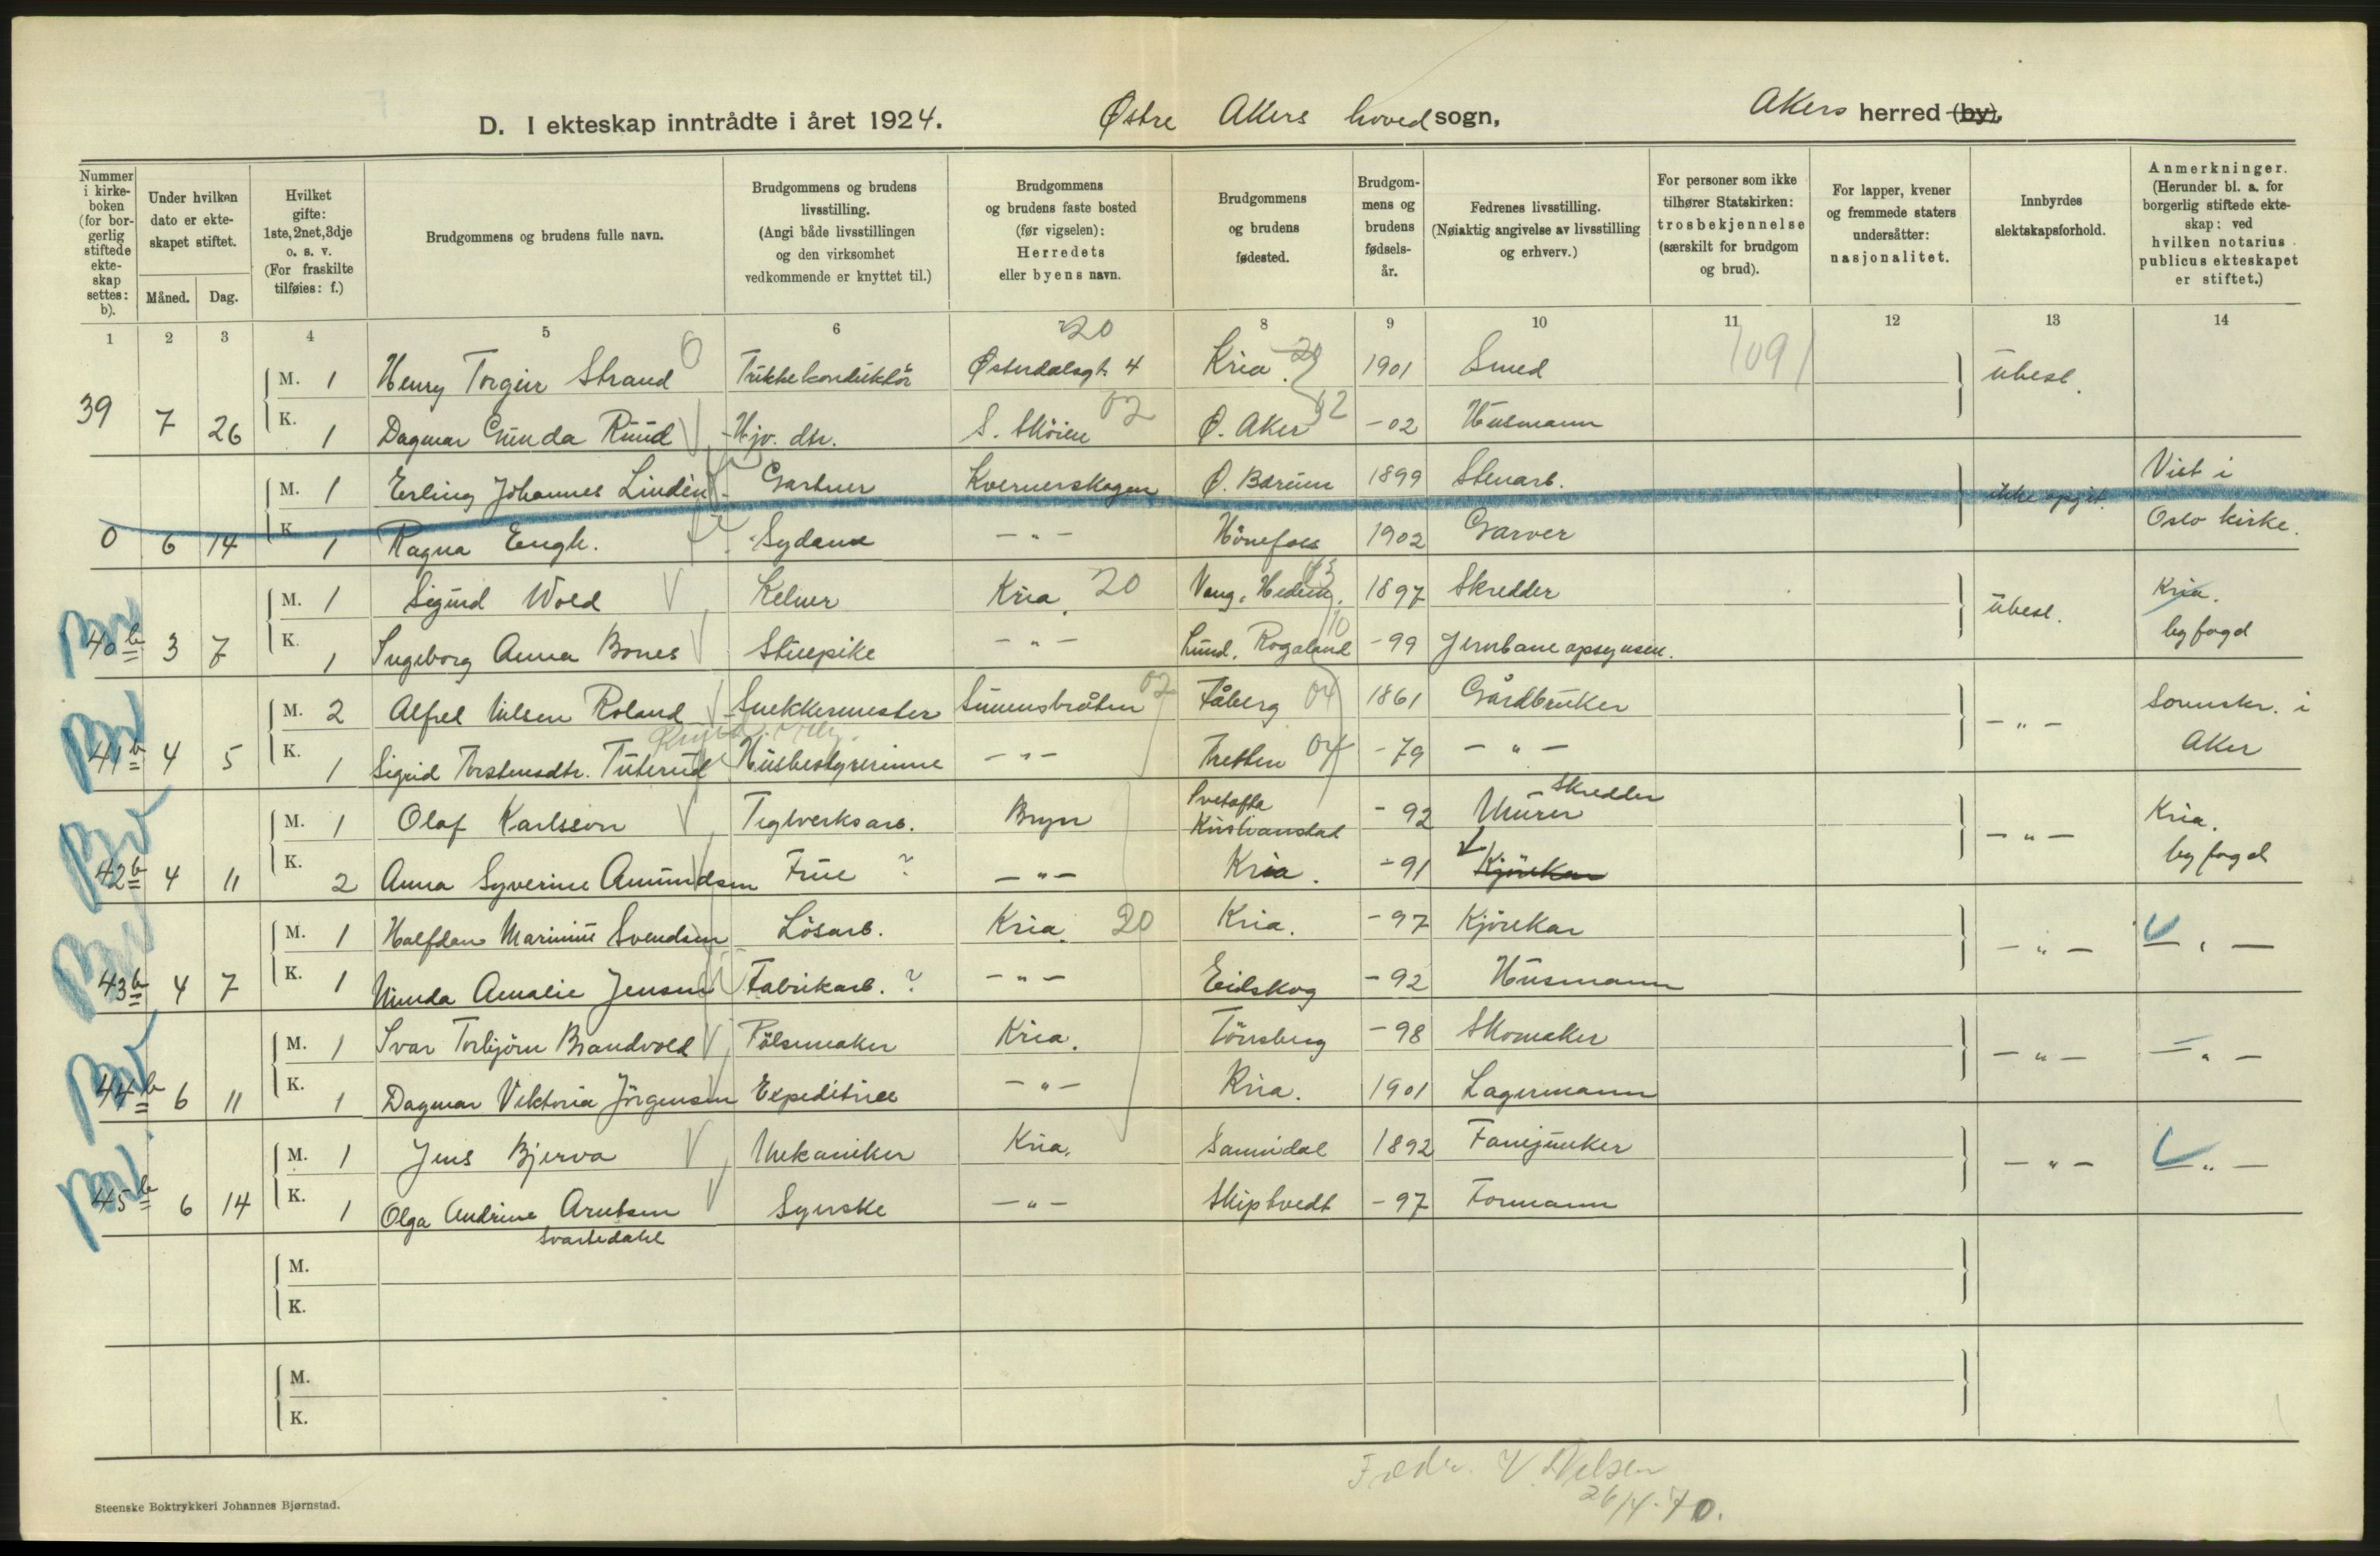 D. I ekteskap inntrådte i året 1924. Østre Akers hovedsogn, Akers herred (by),
Nummer i kirkeboken (for borgerlig stiftede ekteskap settes: b).
Under hvilken dato er ekteskapet stiftet.
Måned. Dag.
Hvilket gifte: 1ste, 2net, 3dje o. s. v. (For fraskilte tilføies: f.)
Brudgommens og brudens fulle navn.
Brudgommens og brudens livsstilling. (Angi både livsstillingen og den virksomhet vedkommende er knyttet til.)
Brudgommens og brudens faste bosted (før vigselen): Herredets eller byens navn.
Brudgommens og brudens fødested.
Brudgommens og brudens fødselsår.
Fedrenes livsstilling. (Nøiaktig angivelse av livsstilling og erhverv.)
For personer som ikke tilhører Statskirken: trosbekjennelse (særskilt for brudgom og brud).
For lapper, kvener og fremmede staters undersåtter: nasjonalitet.
Innbyrdes slektskapsforhold.
Anmerkninger. (Herunder bl. a. for borgerlig stiftede ekteskap: ved hvilken notarius publicus ekteskapet er stiftet.)
1 2 3 4 5 6 20 8 9 10 11 12 13 14
M. 1 Henry Torgeir Strand Trikkekonduktør Østerdalsgt. 4 Kria. 20 1901 Smed 1091 ubesl.
39 7 26 K. 1 Dagmar Gunda Ruud Hjv. dtr. S. Skøien 02 Ø. Aker 02 -02 Husmann
M. 1 Erling Johannes Linden Gartner Kvernerskogen Ø. Bærum 1899 Stenarb. ikke opgit. Viet i
0 6 14 K. 1 Ragna Engh. Sydame - " - Hönefoss 1902 Garver Oslo kirke.
M. 1 Sigurd Wold Kelner Kria. 20 Vang, Hedem. 03 1897 Skredder ubesl. Kria.
40b 3 7 K. 1 Ingeborg Anna Bones Stuepike - " - Lund, Rogaland 10 -99 Jernbaneopsynsm. byfogd
M. 2 Alfred Nilsen Roland Snekkermester Simensbråten 02 Fåberg 04 1861 Gårdbruker - " - Sorenskr. i
41b 4 5 K. 1 Sigrid Torstensdtr. Tuterud Husbestyrerinne - " - Tretten 04 -79 - " - Aker
M. 1 Olaf Karlsson Teglverksarb. Bryn Kristianstad -92 Murer Skredder - " - Kria.
42b 4 11 K. 2 Anna Syverine Amundsen Frue ? - " - Kria. -91 Kjörekar byfogd
M. 1 Halfdan Marinius Svendsen Lösarb. Kria. 20 Kria. -97 Kjörekar - " - - " -
43b 4 7 K. 1 Minda Amalie Jensen Fabrikarb. ? - " - Eidskog -92 Husmann
M. 1 Ivar Torbjörn Brandvold Pölsemaker Kria. Tönsberg -98 Skomaker - " - - " -
44b 6 11 K. 1 Dagmar Viktoria Jörgensen Expeditrice - " - Kria. 1901 Lagermann
M. 1 Jens Bjerva Mekaniker Kria. Sannidal 1892 Fanejunker - " - - " -
45b 6 14 K. 1 Olga Andrine Arntsen Syerske - " - Skiptvedt -97 Formann
Svartedahl
M.
K.
M.
K.
V. Nelsen
26/4-70.
Steenske Boktrykkeri Johannes Bjørnstad.